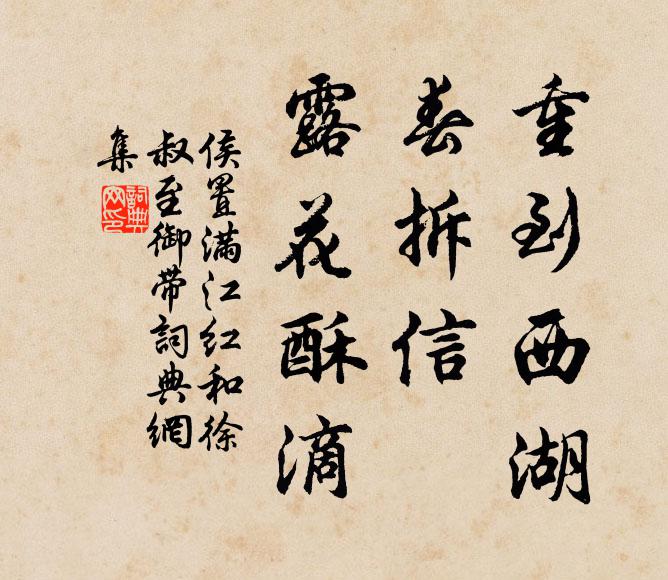 重到西湖
春拆信
露花酥滴
侯置滿江红和徐
叔至御带詞典網
集
詞典
网印